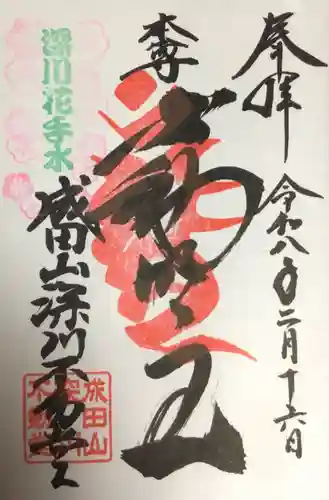 奉拝
令和八年二月十六日
本尊
不動明王
深川花手水
成田山深川不動堂
成田山
深川
不動堂